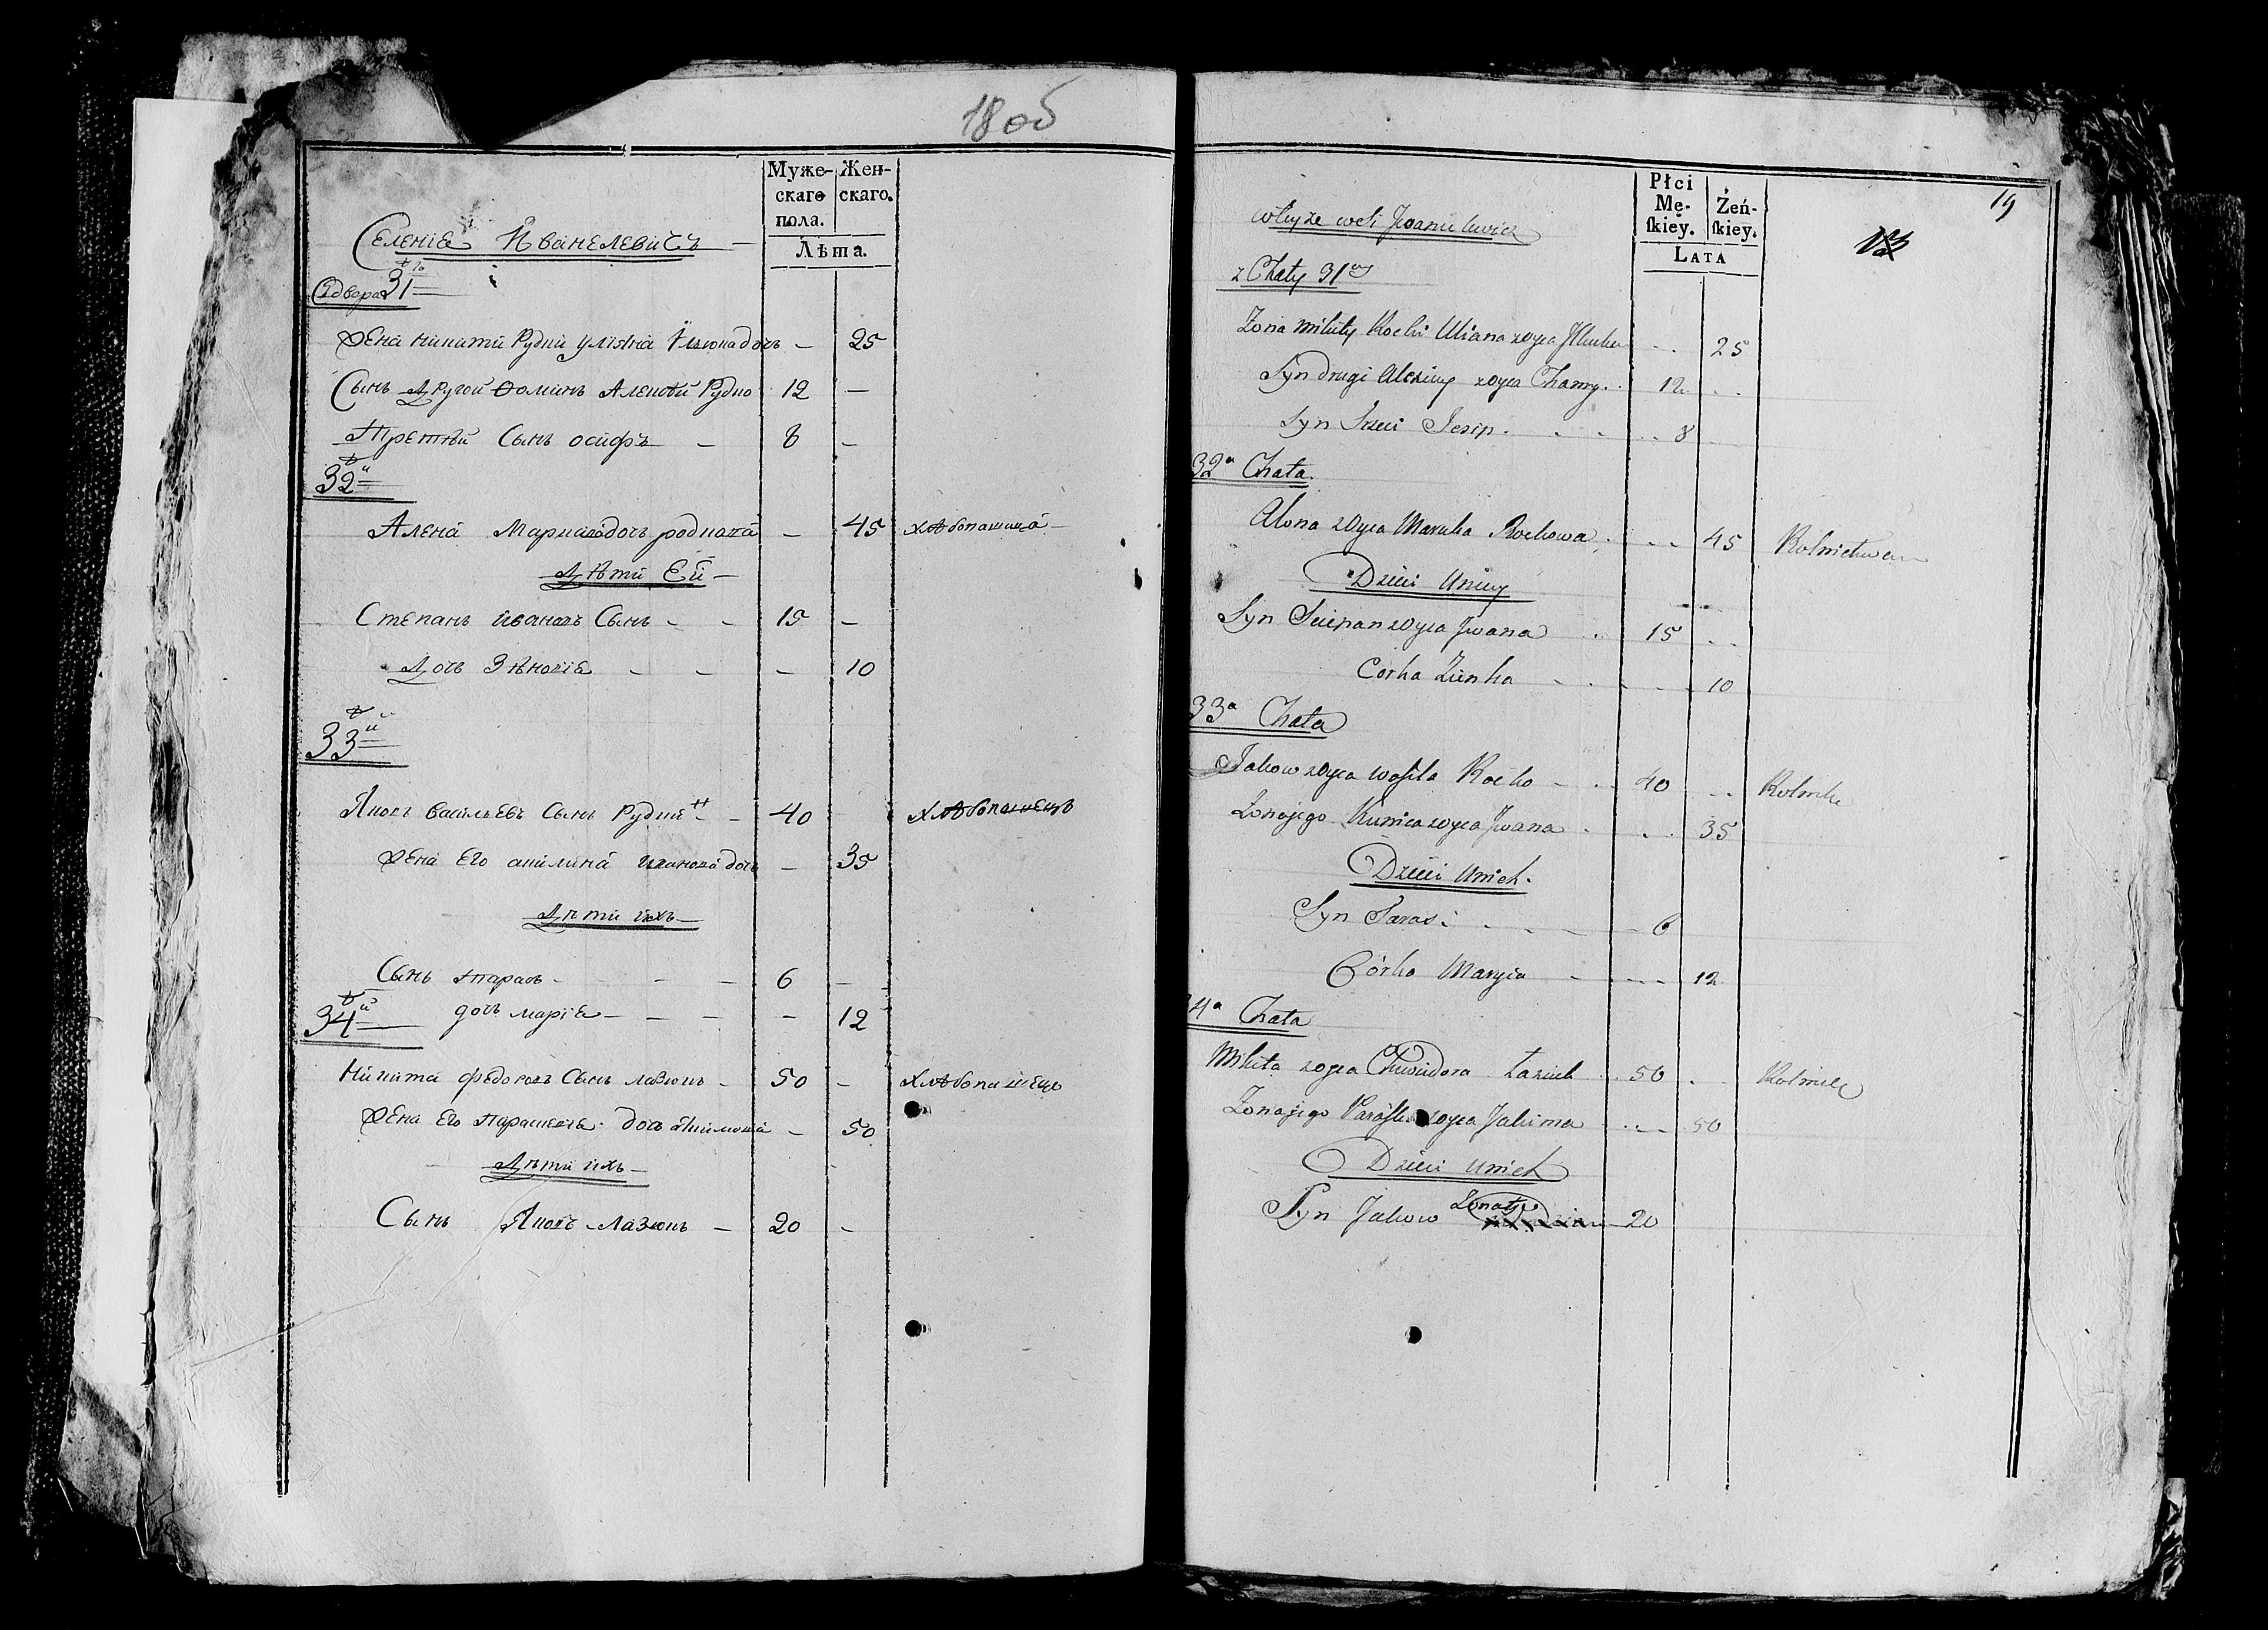 18 об
Муже-
скаго
пола.
Жен-
скаго.
Лѣта.
Селеніе Иванелевичъ
Сдвора 31го
жена никити Рудки уляна дочь — 25
Сынъ другой Фоминъ Алексѣй Рудко 12 —
Третій Сынъ осифъ — 8 —
32й
Алена Маркова дочъ — 45 хлѣбопашица
Дѣти Ей
Степанъ Ивановъ Сынъ - - 15 —
Дочъ Зѣновіе - - — 10
33й
Яковъ Васильевъ Сынъ Рудкий - 40 хлѣбопашецъ
жена Его акилина Иванова дочь — 35
Дѣти ихъ
Сынъ тарасъ - - — 6 —
34й
дочъ маріе - - - - 12
Никита федоровъ Сынъ лазюкъ - 50 — хлѣбопашецъ
жена Его Парасковіе дочь Якимова — 50
Дѣти ихъ
Сынъ Яковъ Лазюкъ — 20 —
19
Płci
Mę-
ſkiey.
Żeń-
ſkiey.
LATA
wteyze wsi Iwanilewicz
z Chaty 31ey
Zona Mikity Rocki Uliana 25
Syn drugi Alexiey 12
Syn trzeci Josip 8
32a Chata
Alona zoyca Marka Rockowa 45 Rolnictwem
Dzieci Uniey
Syn Sciepan zoyca Jwana 15
Corka Zienka 10
33a Chata
Jakow zoyca Wasila Rocko 40 Rolnik
Zona jego Kunica zoyca Jwana 35
Dzieci Unich
Syn Taras 6
Córka Maryia 12
4a Chata
Mikita zoyca Chwiedora Łaziuk 50 Rolnik
Zona jego Paraska zoyca Jakima 50
Dzieci unich
Syn Jakow Zonaty 20